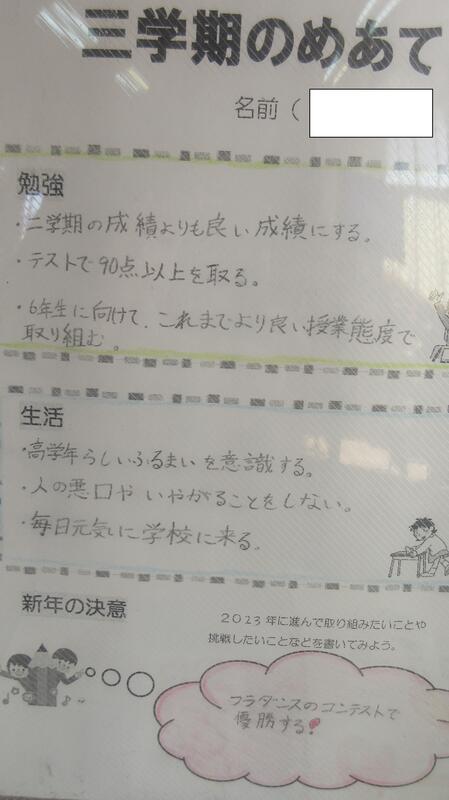 三学期のめあて
名前（
勉強
・二学期の成績よりも良い成績にする。
・テストで90点以上を取る。
・6年生に向けて、これまでより良い授業態度で
取り組む。
生活
・高学年らしいふるまいを意識する。
・人の悪口やいやがることをしない。
・毎日元気いに学校に来る。
新年の決意
2023年に進んで取り組みたいことや
挑戦したいことなどを書いてみよう。
フラダンスのコンテストで
優勝する!